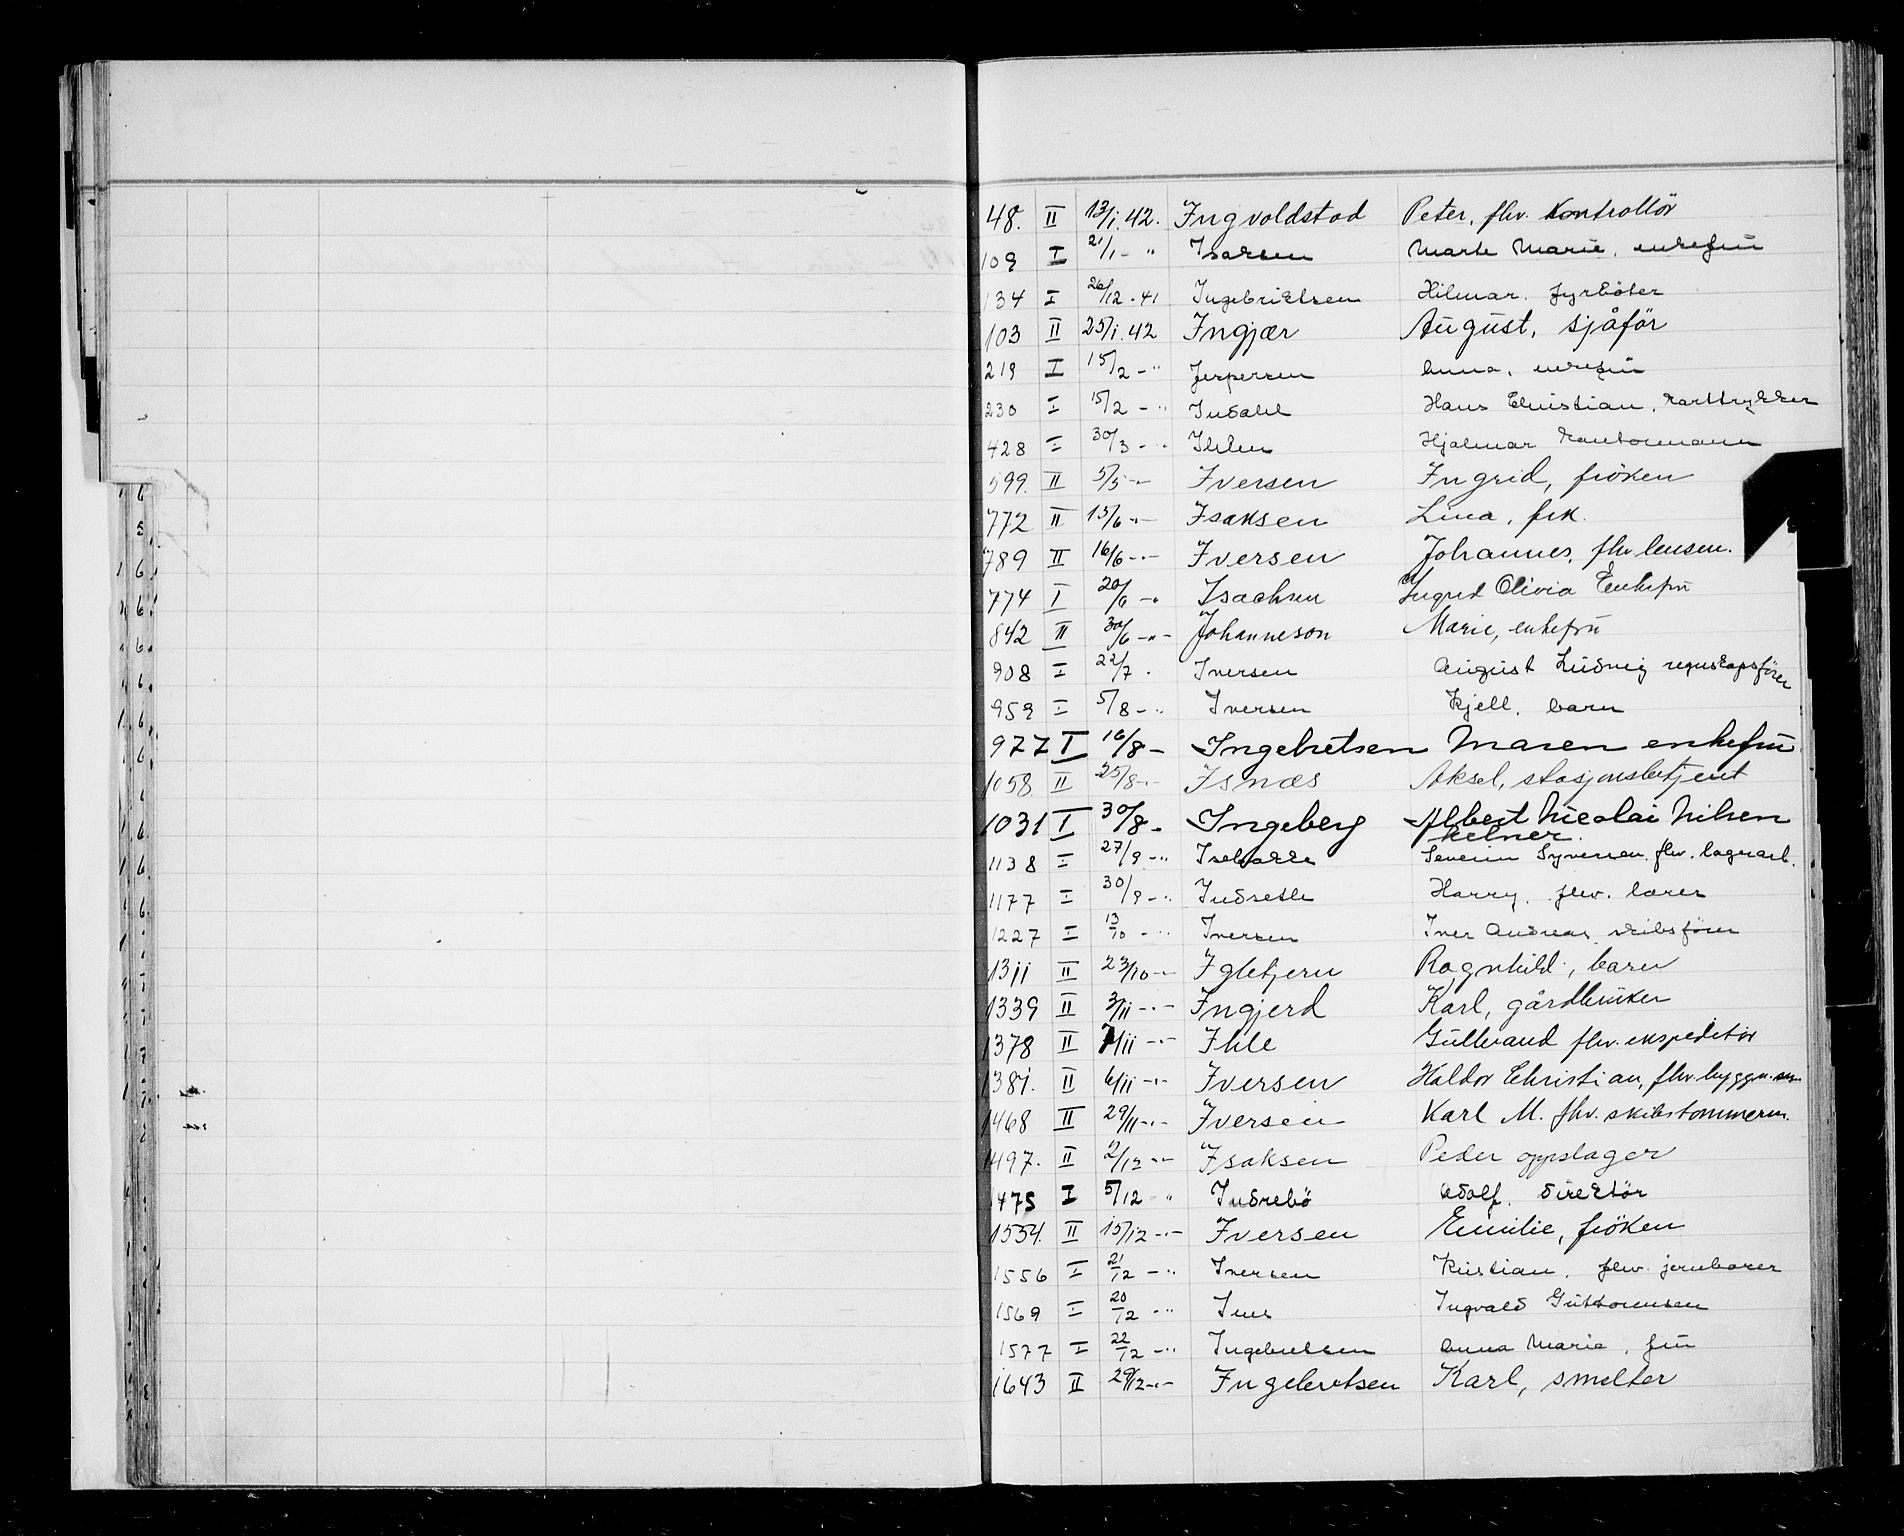 48. II 13/1.42. Ingvoldstad Peter, fhv. Kontrollör
109 I 21/1 - " Isaksen Marte Marie, enkefru
134 I 26/12 - 41 Ingebriktsen Hilmar. fyrböter
103 II 25/1.42 Ingjær August, sjåför
219 I 15/2 - " Jespersen Anna, enkefru
230 I 15/2 - " Indahl Hans Christian, karttrykker
428 I 30/3 - " Ihlen Hjalmar kontormann
599. II 5/5 - " - Iversen Ingrid, fröken
772 II 15/6 " - Isaksen Lina, frk.
789 II 16/6 - " - Iversen Johannes, fhv. lensm.
774 I 20/6 - " Isachsen Ingrid Olivia Enkefru
842 II 30/6 - " - Johanneson Marie, enkefru
908 I 22/7 . Iversen August Ludvig regnskapsfører
959 I 5/8 - " Iversen Kjell. barn
977 I 16/8 - Ingebretsen Maren enkefru
1058 II 25/8 - " - Isnæs Aksel, stasjonsbetjent
1031 I 30/8 - Ingeberg Albert Nicolai Nilsen
kelner.
1138 I 27/9 - " Isebakke Severin Syversen. fhv. lagerarb.
1177 I 30/9 - " Indseth Harry. fhv. lærer
1227 I 13/10 - " Iversen Iver Andreas, skibsfører
1311 II 23/10 - " - Igletjern Ragnhild, barn
1339 II 3/11 - " - Ingjerd Karl, gårdbruker
1378 II 7/11 - " - Ihle Gulbrand fhv. ekspeditör
1381. II 6/11 - " - Iversen Haldor Christian, fhv. byggm.
1468 II 29/11 - " - Iversen Karl M. fhv. skibstömmerm.
1497. II 2/12 - " - Isaksen Peder oppslager
1475 I 5/12 - " Indrebö Adolf. direktör
1554. II 15/12 - " - Iversen Emilie, fröken
1556 I 21/12 - " Iversen Kristian. fhv. jernbarer
1569 I 20/12 - " Iens Ingvald Guttormsen
1577 I 22/12 - " Ingebretsen Anna Marie, fru
1643 II 29/12 - " - Ingebretsen Karl, smelter